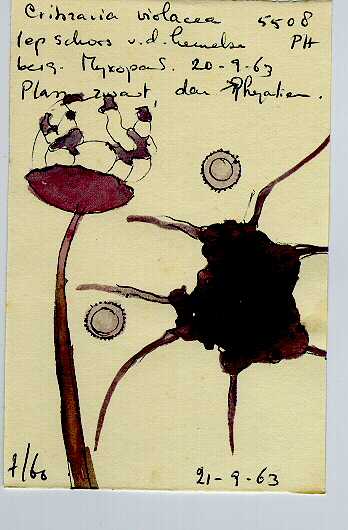 Cribraria violacea 5508
iep schors v.d. hemelse PH
berg. Myxopan S. 20-9-63
Plasm. zwart, dan Physatien.
1/60
21-9-63